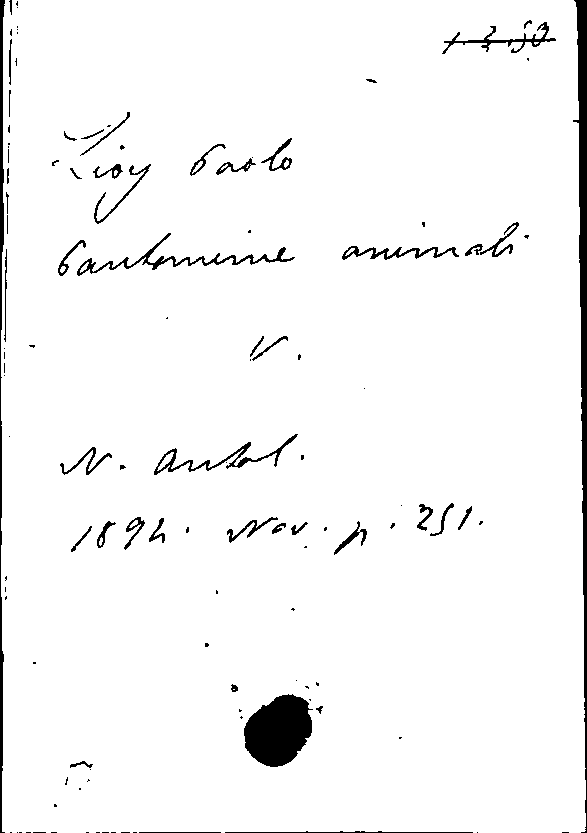 1.2.50
Lioy Paolo
Pantomime animali
V.
N. Antol.
1892. Nov. p. 251.